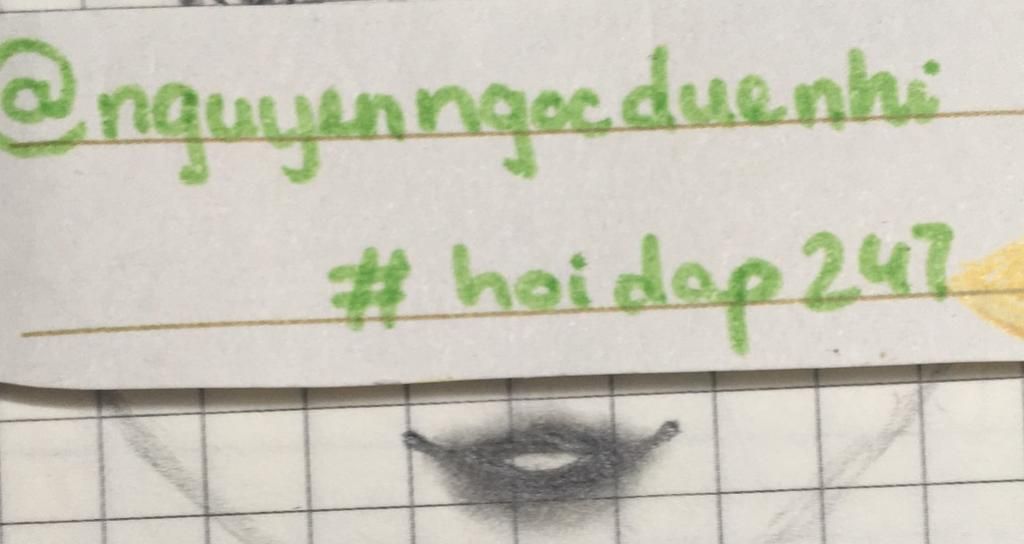 @nguyenngocduenhi
# hoidap247